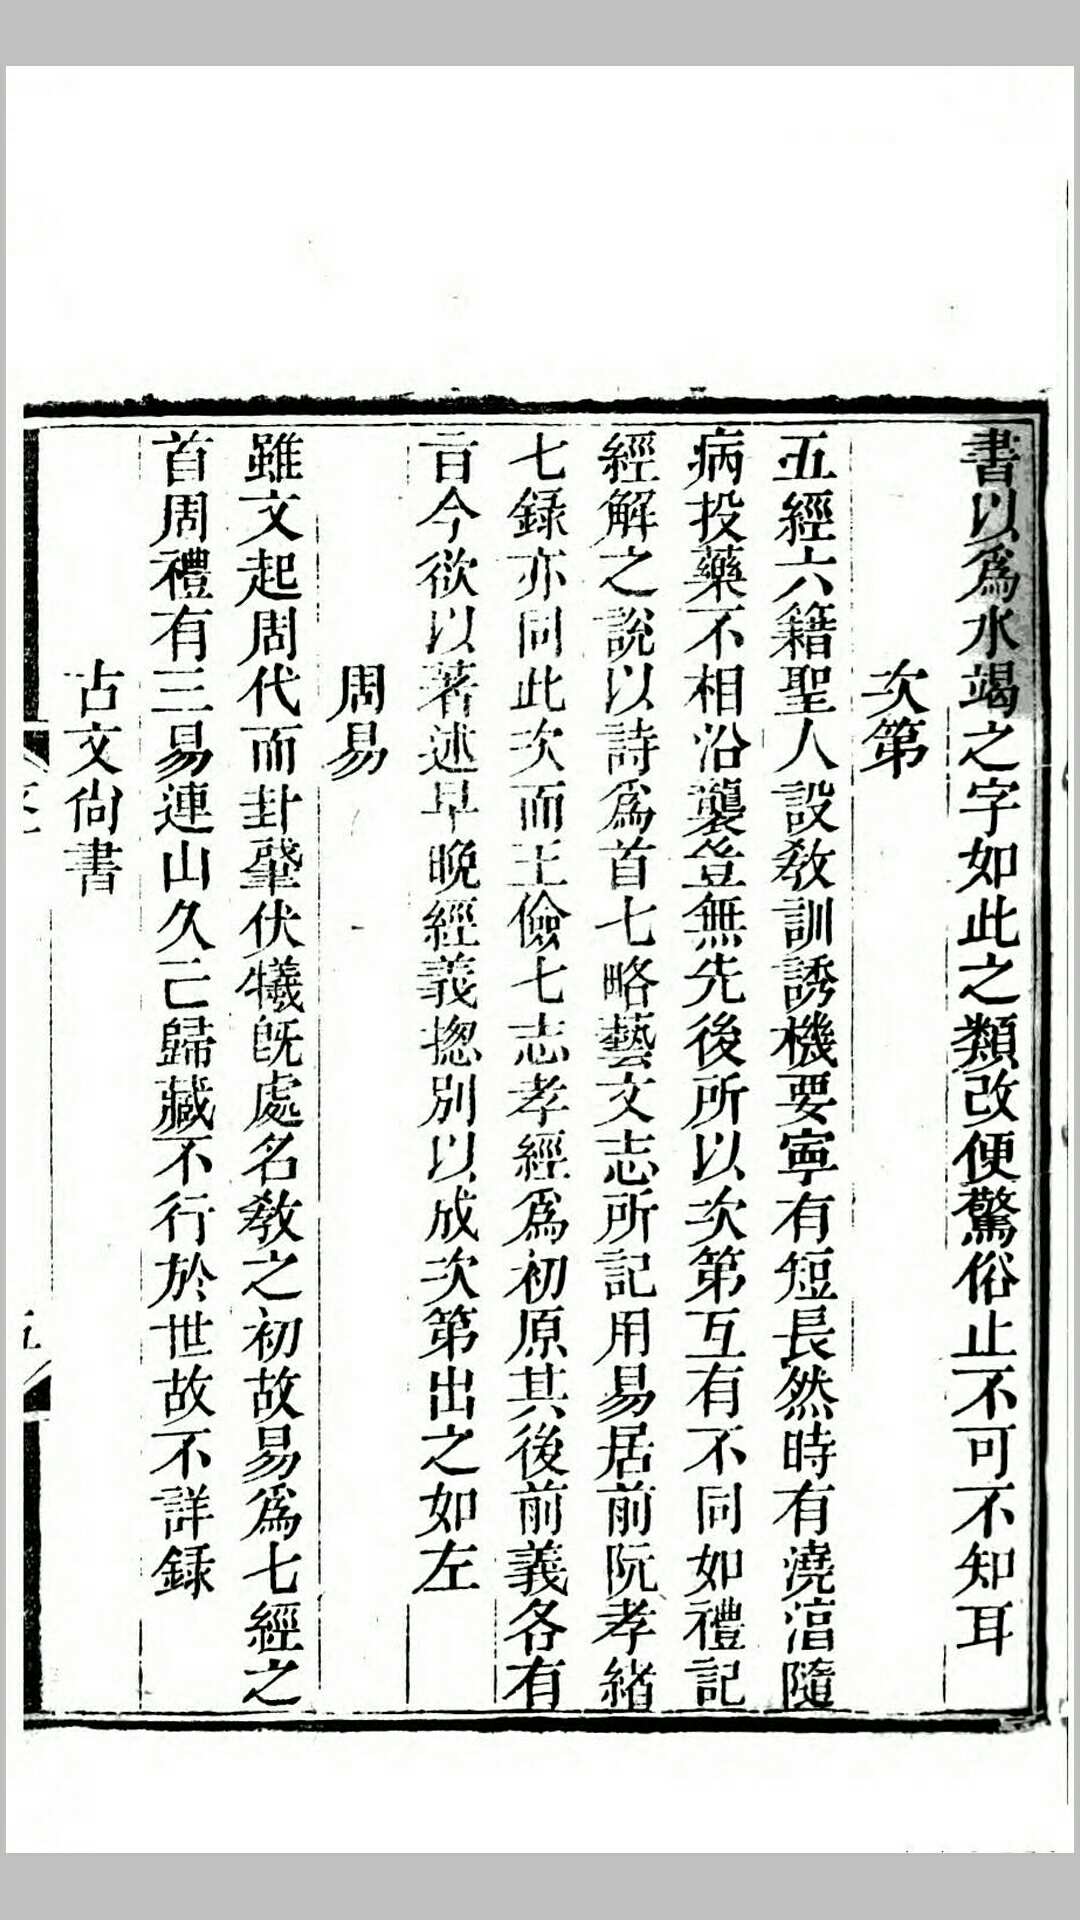 書以爲水竭之字如此之類改便驚俗止不可不知耳
次第
五經六籍聖人設敎訓誘機要寧有短長然時有澆淳隨
病投藥不相沿襲豈無先後所以次第互有不同如禮記
經解之說以詩爲首七略藝文志所記用易居前阮孝緒
七録亦同此次而王儉七志孝經爲初原其後前義各有
旨今欲以著述早晚經義揔別以成次第出之如左
周易
雖文起周代而卦肇伏犧旣處名敎之初故易爲七經之
首周禮有三易連山久亡歸藏不行於世故不詳録
古文尙書
五